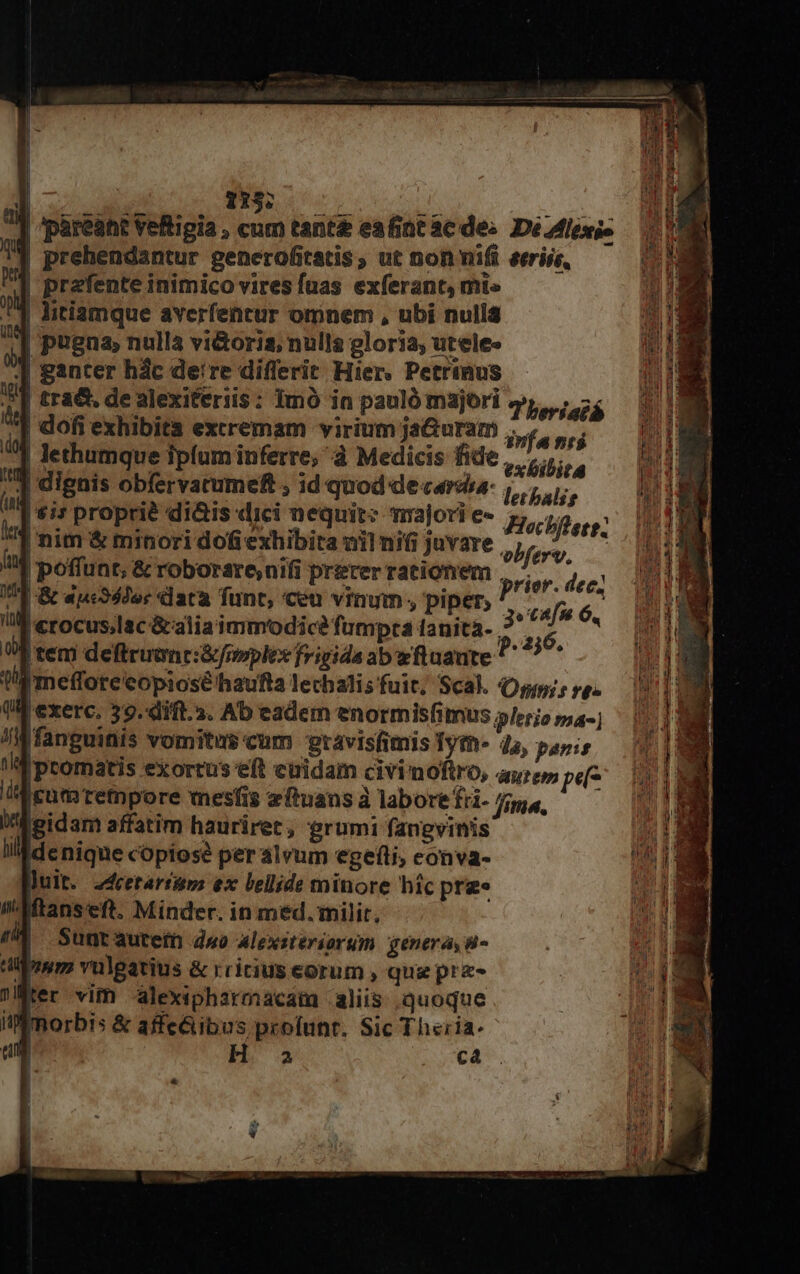 115.
pareant veſtigia, cum tantæ ea ſint ac de- De Alexi-
prehendantur generoſitatis, ut non niſi teriis,
præſente inimico vires ſuas exſerant, mi-
litiamque averſentur omnem, ubi nulla
pugna, nulla victoria, nulla gloria, utele-
ganter hâc de re differit Hier. Petrinus
tract. de alexiteriis: Imò in paulò majori Theriacà
doſi exhibita extremam virium jacturam inſa ntî
lethumque ipſum inferre, à Medicis fide exhibita
dignis obſervatum eſt, id quod de cardia- lethalis
cis propriè dictis dici nequit: majori e- Hochſtett.
nim & minori doſi exhibita nil niſi juvare obſerv.
poſſunt, & roborare, niſi præter rationem prior. dec.
& data ſunt, ceu vinum, piper, 3. caſu 6.
crocus, lac & alia immodicè ſumpta ſanita- p. 236.
tem deſtruunt: & ſimplex frigida ab æſtuante
meſſore copiosè hauſta lethalis fuit, Scal. Omnis re-
exerc. 39. diſt. 2. Ab eadem enormisſimus pletio ma-
ſanguinis vomitus cum gravisſimis ſym- la, panis
ptomatis exortus eſt cuidam civi noſtro, autem peſ-
cum tempore mesſis æſtuans à labore fri- ſima.
gidam affatim hauriret, grumi ſangvinis
denique copiosè per alvum egeſti, conva-
luit. Acetarium ex bellide minore hîc præ-
ſtans eſt. Minder. in med. milit.
Sunt autem duo alexiteriorum genera, u-
num vulgatius & ricius eorum, quæ præ-
ter vim alexipharmacam aliis quoque
morbis & affectibus proſunt. Sic Theria-
H 2 ca